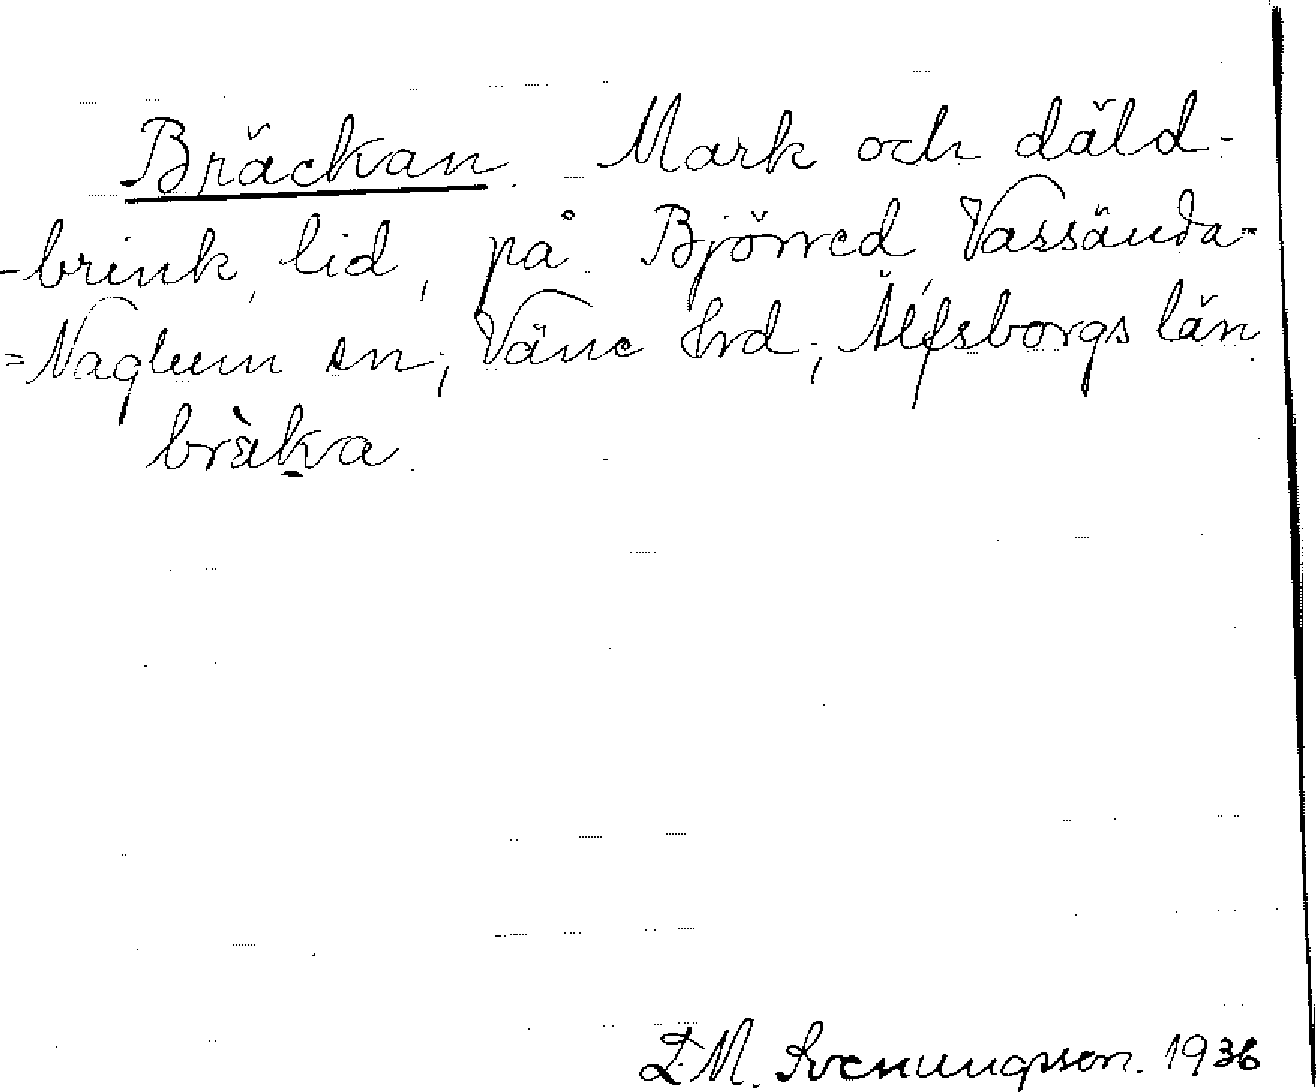 Bräckan. Mark och däld-
-brink, lid, på Björred Vassända-
=Naglum sn; Väne hrd; Älfsborgs län.
bràka.
L.M. Svenungsson. 1936